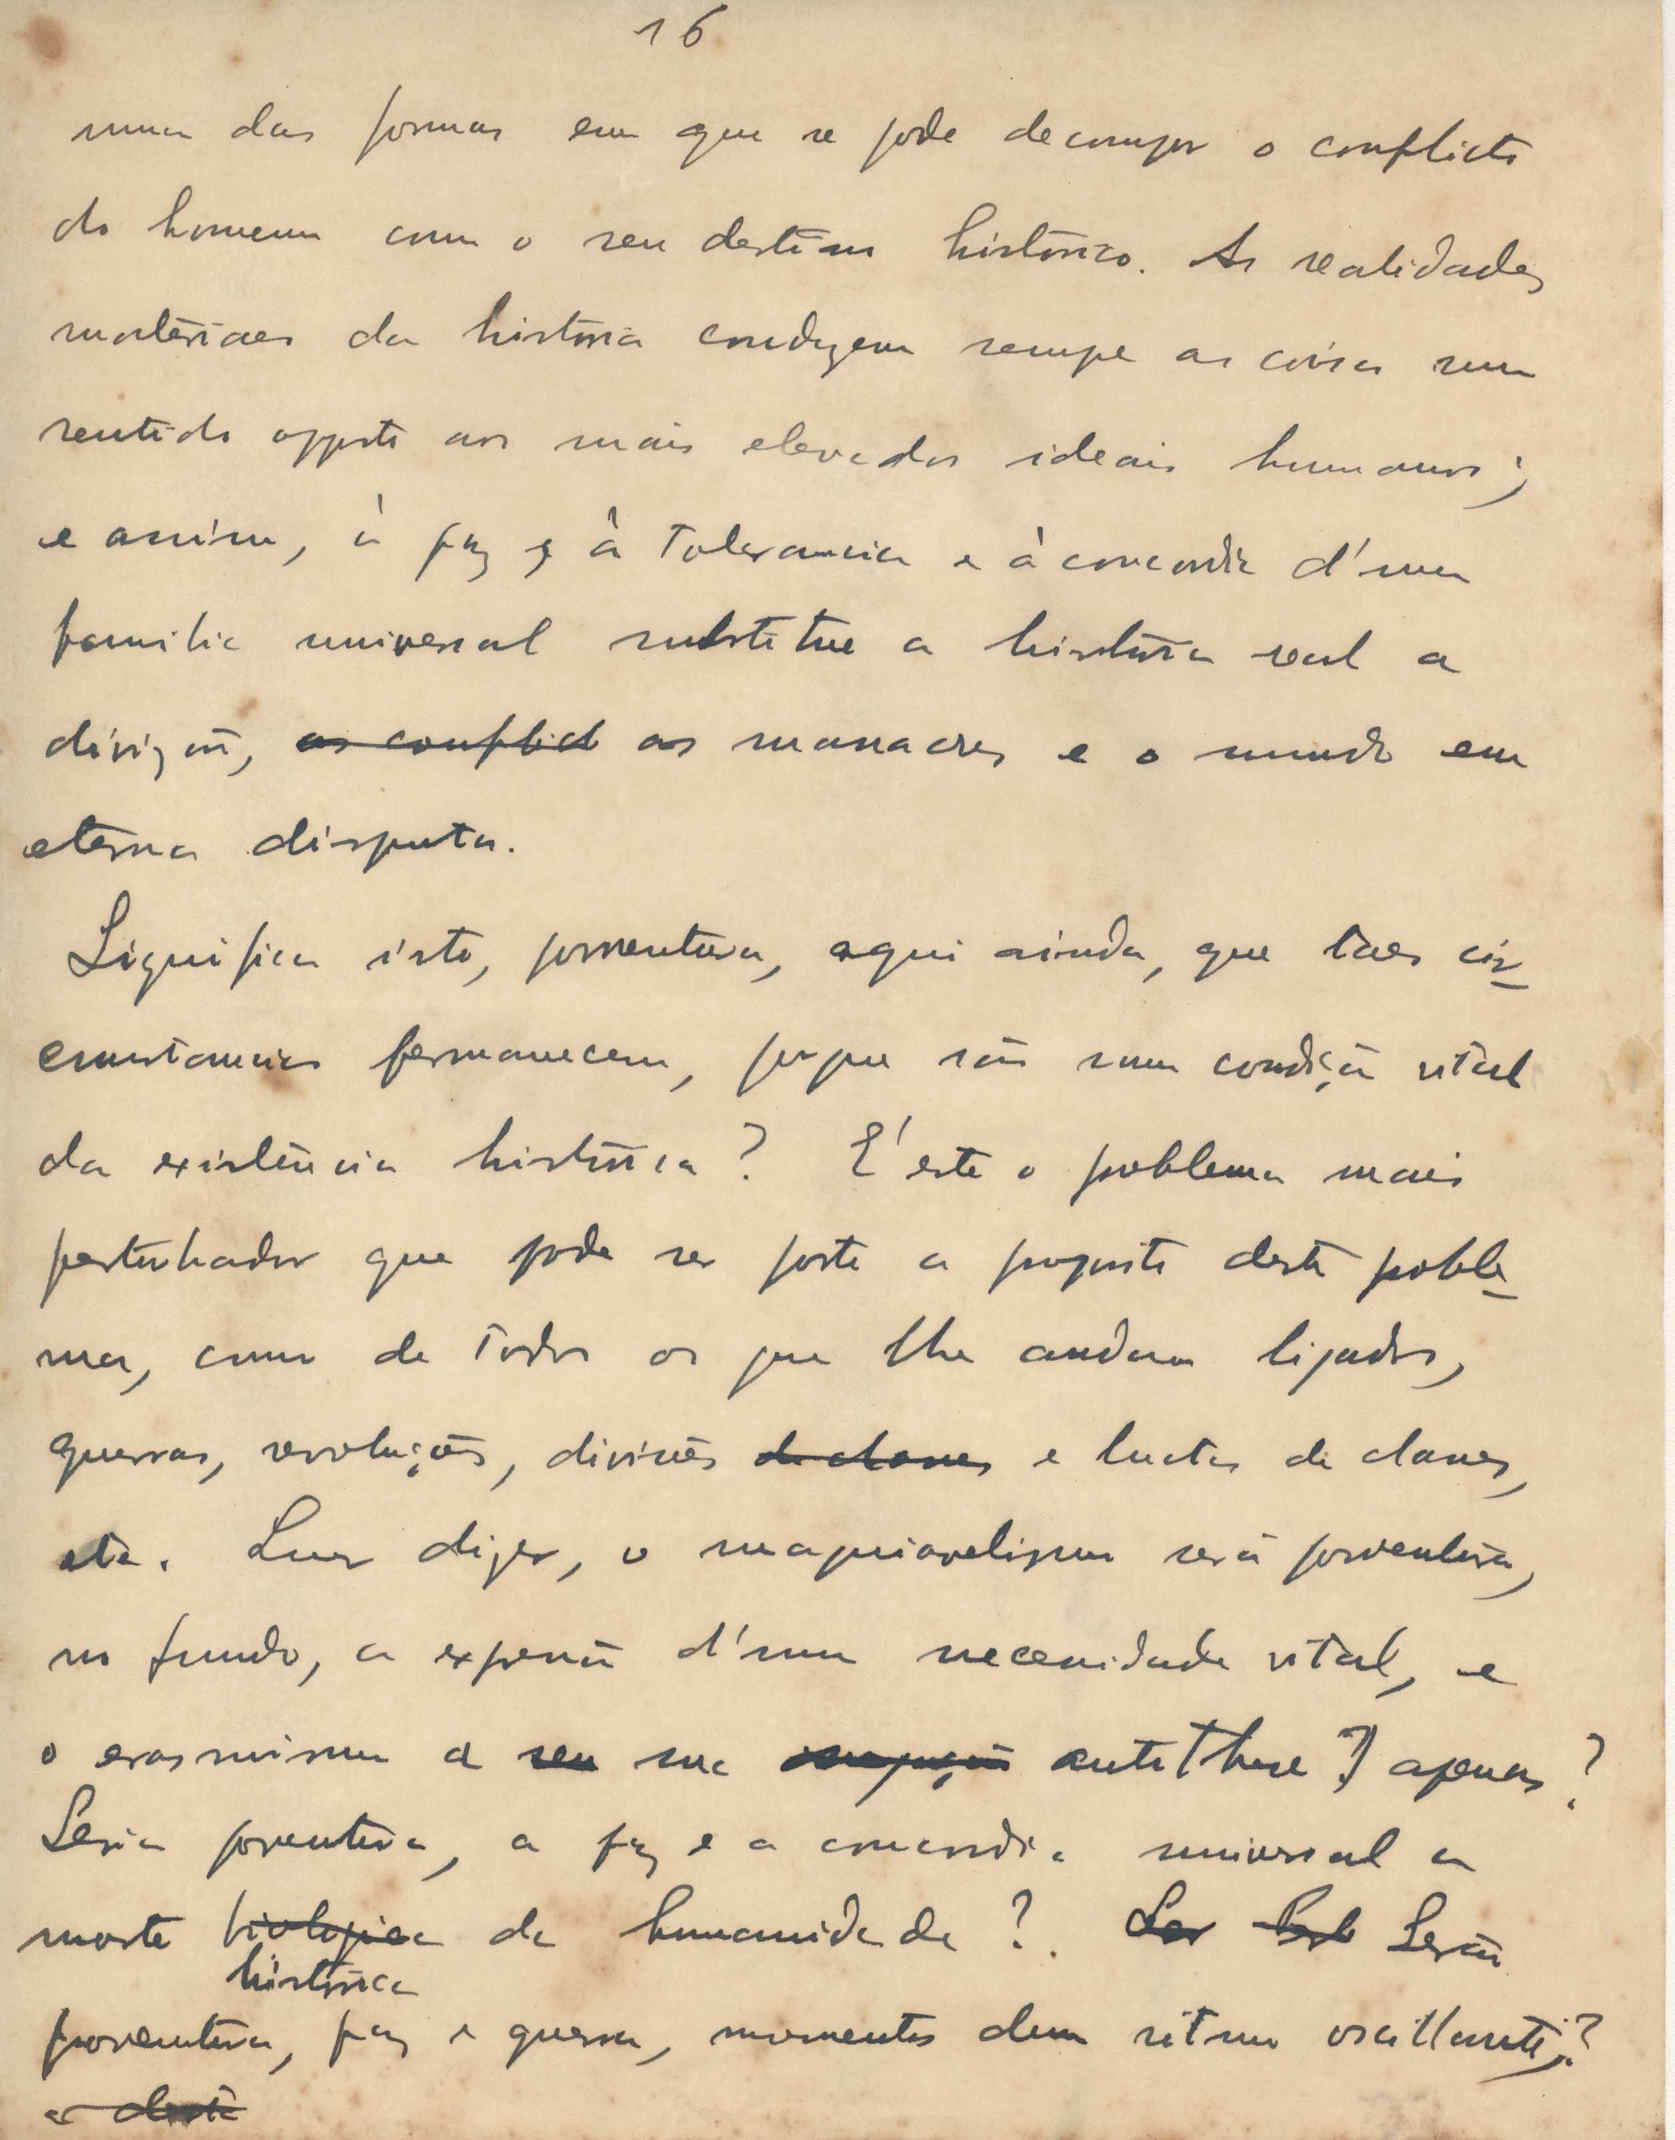 16
numa das formas em que se pode decompor o conflicto
do homem com o seu destino histórico. As realidades
materiaes da história conduzem sempre as coisas num
sentido opposto aos mais elevados ideais humanos;
e assim, á paz e á tolerancia e á concordia d'uma
familia universal substitue a história real a
divizão, as conflict as e o mundo em
eterna disputa.
Significa isto, porventura, aqui ainda, que taes cir-
cunstancias permanecem, porque são uma condição vital
da existência histórica? E' este o problema mais
perturbador que pode ser posto a proposito deste proble-
ma, como de todos os que lhe andam ligados,
guerras, revoluções, divisões de classes e luctas de classes,
etc. Quer dizer, o maquiavelismo será porventura,
no fundo, a expressão d'uma necessidade vital, e
o erasmismo a seu sua antithese?) apenas?
Seria porventura, a paz e a concordia universal a
morte biologica da humanidade? Ser Serão
histórica
porventura, paz e guerra, momentos dum ritmo oscillante?